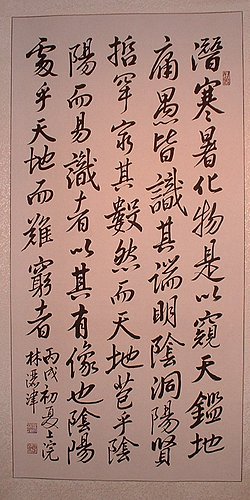 潛寒暑化物是以窺天鑑地
痛愚皆識其端明陰洞陽賢
哲罕窮其數然而天地苞乎陰
陽而易識者以其有像也陰陽
處乎天地而難窮者
丙戌初夏上浣
林